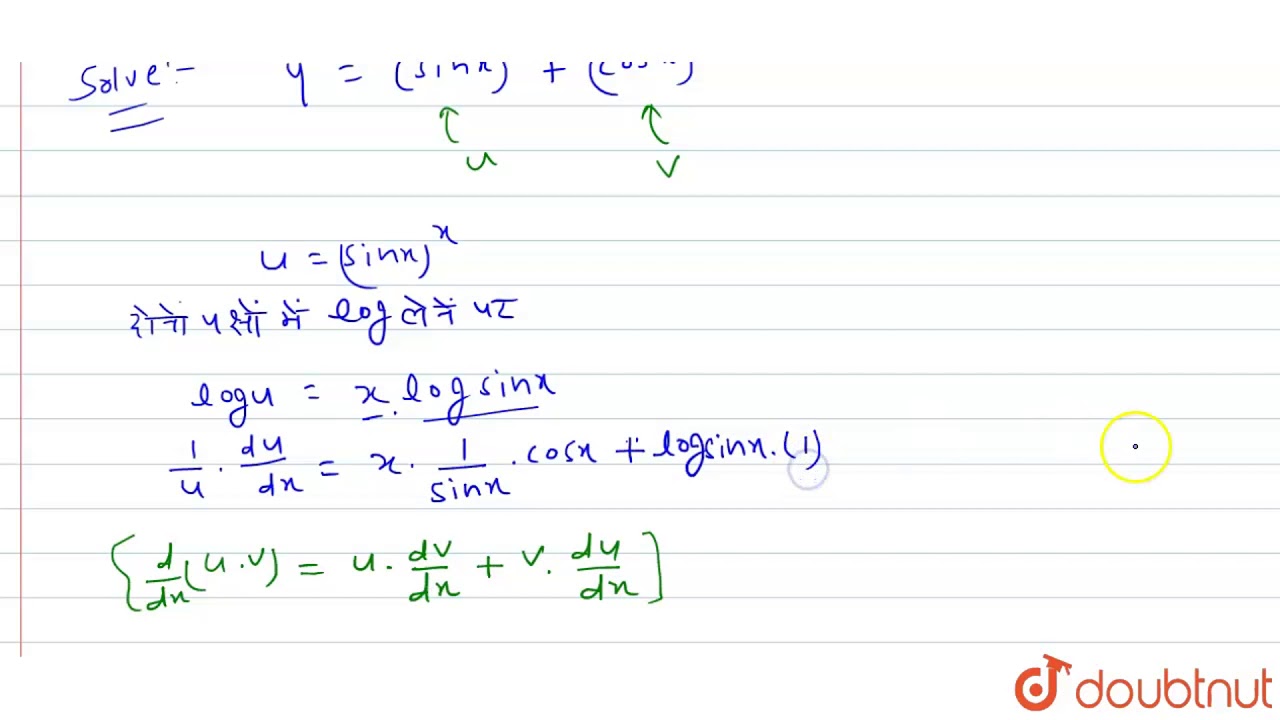 Solve:- y = (sinx) + (cosx)
u v
u = (sinx)^x
दोनों पक्षों में log लेने पर
logu = x. logsinx
1/u . du/dx = x . 1/sinx . cosx + logsinx.(1)
{d/dx (u.v) = u . dv/dx + v. du/dx]
doubtnut